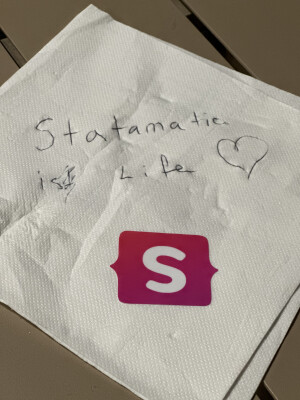 Statamatic
is Life
S